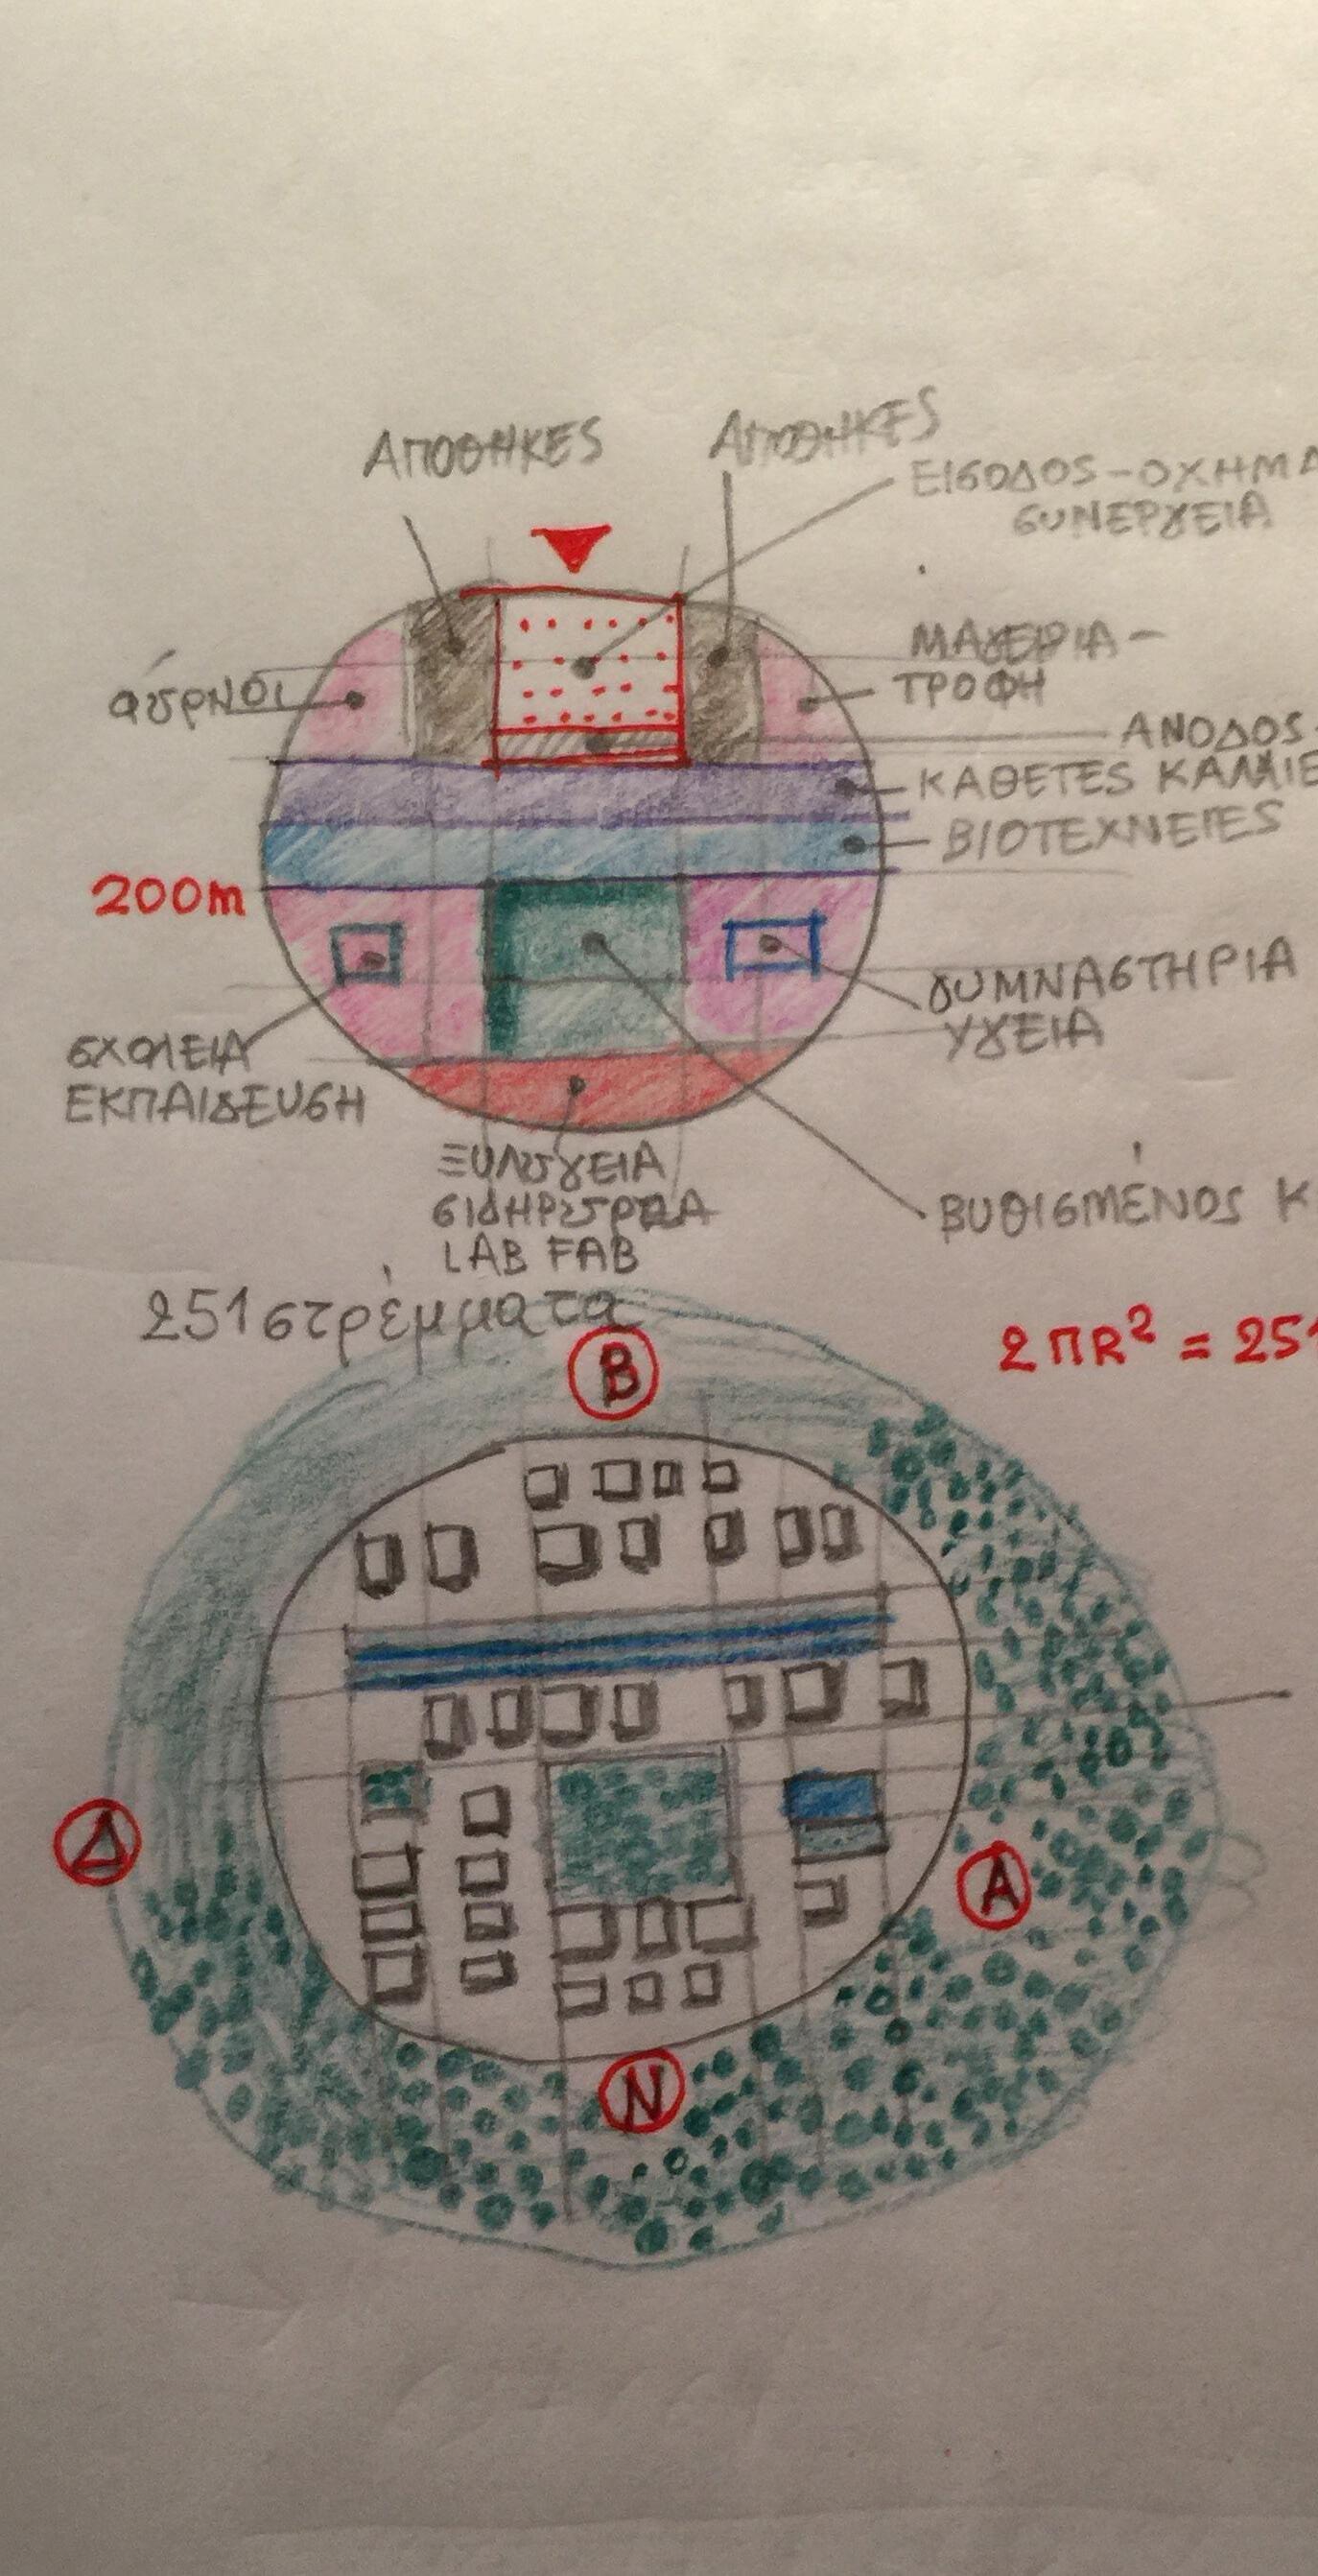 ΑΠΟΘΗΚΕS
ΑΠΟΘΗΚΕS
ΕΙSΟΔΟS-ΟΧΗΜΑ
SΥΝΕΡγΕΙΑ
φύρνοι
ΜΑγΕΙΡΙΑ-
ΤΡΟΦΗ
ΑΝΟΔΟS-
ΚΑΘΕΤΕS ΚΑΛΛΙΕ
ΒΙΟΤΕΧΝΕΙΕS
200m
γΥΜΝΑSΤΗΡΙΑ
ΥγΕΙΑ
SΧΟΛΕΙΑ
ΕΚΠΑΙΔΕΥSΗ
ΞΥΛΟΥγΕΙΑ
LAB FAB
ΒΥΘΙSΜΈΝΟS Κ
251 στρέμματα
2ΠR² = 251
Β
Δ
Α
Ν